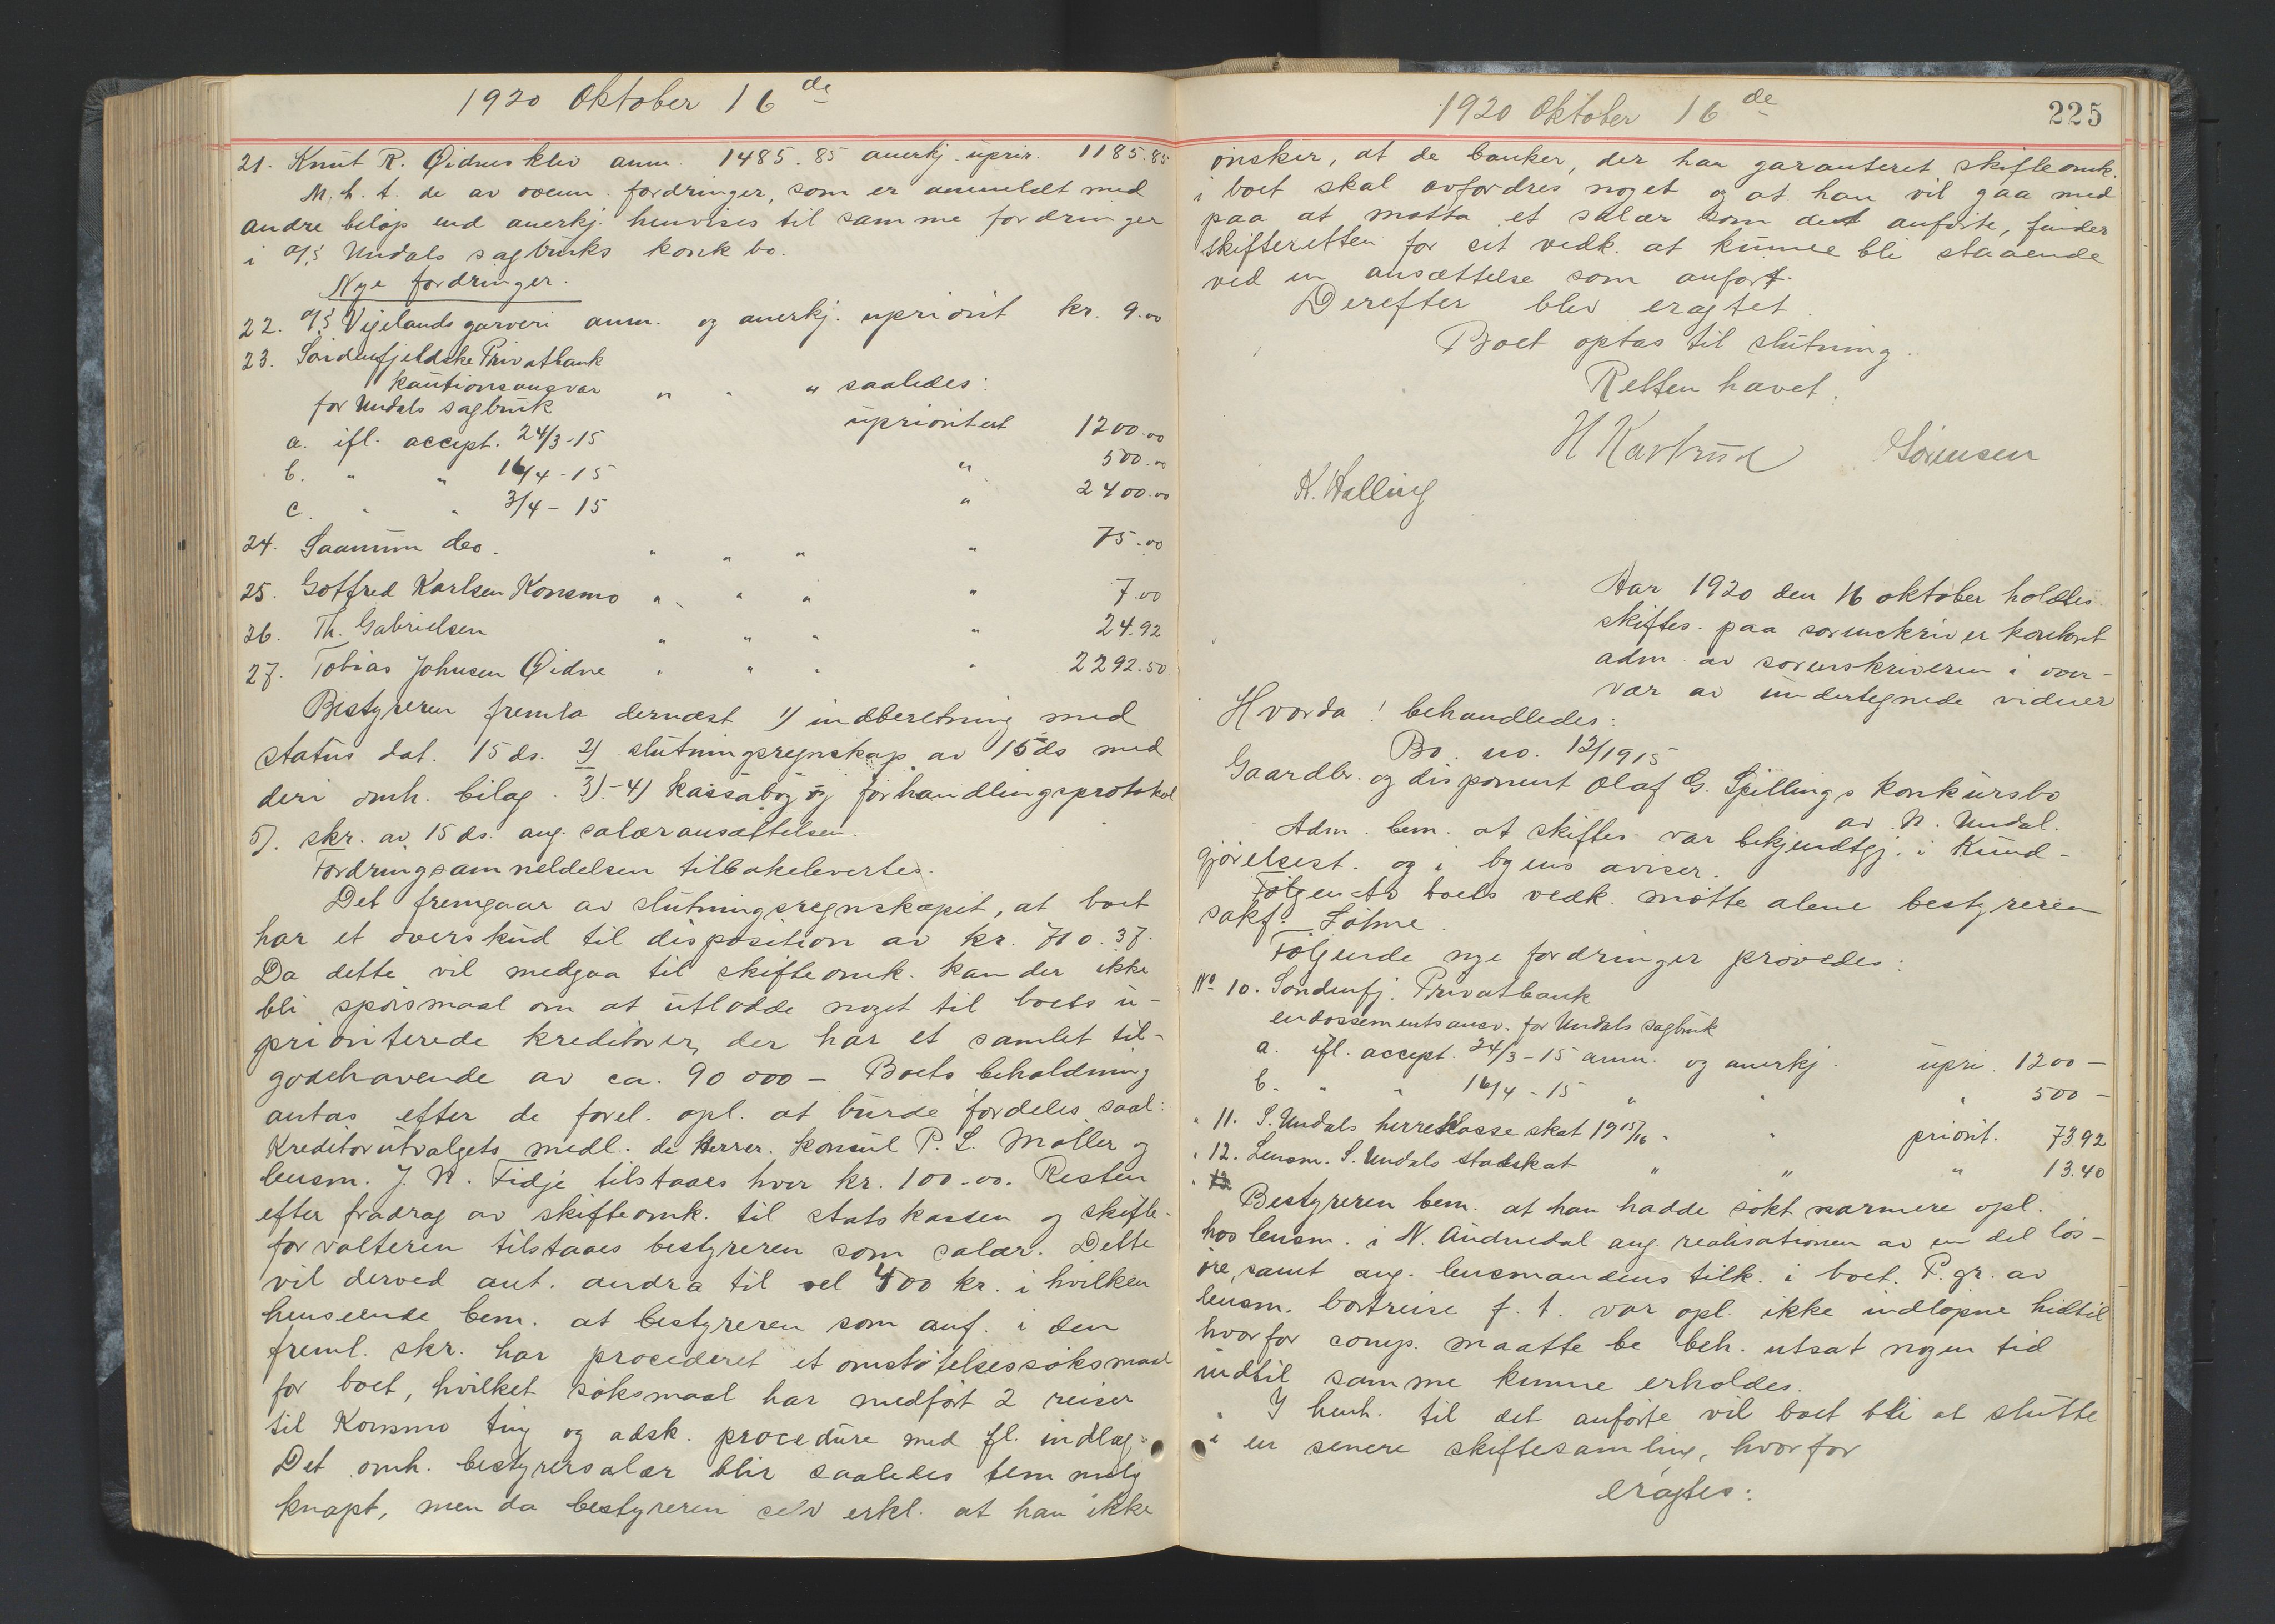 1920 Oktober 16de
21. Knut R. Øidnesklev anm. 1485.85 anerkj. uprir. 1185.85
M. h. t. de av ovenn. fordringer, som er anmeldt med
andre beløp end anerkj. henvises til samme fordringer
i A/S Undals sagbruks konk bo.
Nye fordringer.
22. A/S Vigelands garveri anm. og anerkj. upriorit kr. 9.00
23. Søndenfjeldske Privatbank
kautionsansvar " " " saaledes:
for Undals sagbruk
a. ifl. accept. 24/3-15 uprioritert 1200.00
b. " " 16/4-15 " 500.00
c. " " 3/4-15 " 2400.00
24. Saanum do. " " " " 75.00
25. Gotfred Karlsen Konsmo " " " " 7.00
26. Th. Gabrielsen " " " " 24.92
27. Tobias Johnsen Øidne " " " " 2292.50
Bestyreren fremla dernæst 1) indberetning med
status dat. 15 ds. 2) slutningsregnskap av 15 ds med
deri omh. bilag. 3)-4) kassabog og forhandlingsprotokol
5). skr. av 15 ds. ang. salæransættelsen.
Fordringsanmeldelsen tilbakelevertes.
Det fremgaar av slutningsregnskapet, at boet
har et overskud til disposition av kr. 710.37.
Da dette vil medgaa til skifteomk. kan der ikke
bli spørsmaal om at utlodde noget til boets u-
prioriterede kreditorer, der har et samlet til-
godehavende av ca. 90 000 - Boets beholdning
antas efter de forel. opl. at burde fordeles saal:
Kreditorutvalgets medl. de Herrer. Konsul P. L. Møller og
lensm. J. N. Fidje tilstaaes hver kr. 100.00. Resten
efter fradrag av skifteomk. til statskassen og skifte-
forvalteren tilstaaes bestyreren som salær. Dette
vil derved ant. andra til vel 400 kr. i hvilken
henseende bem. at bestyreren som anf. i den
freml. skr. har procederet et omstøtelsessøksmaal
for boet, hvilket søksmaal har medført 2 reiser
til Konsmo ting og adsk. procedure med fl. indlæg.
Det omh. bestyrersalær blir saaledes temmelig
knapt, men da bestyreren selv erkl. at han ikke
1920 Oktober 16de
225
ønsker, at de banker, der har garanteret skifteomk.
i boet skal avfordres noget og at han vil gaa med
paa at motta et salær som det anførte, finder
skifteretten for sit vedk. at kunne bli staaende
ved en ansættelse som anført.
Derefter blev eragtet.
Boet optas til slutning.
Retten hævet.
Sørensen
K. Halling
Aar 1920 den 16 oktober holdtes
skiftes. paa sorenskriverkontoret
adm. av sorenskriveren i over-
vær av undertegnede vidner
Hvorda! behandledes:
Bo. no. 12/1915
Gaardbr. og disponent Olaf G. Spillings konkursbo
av N. Undal.
Adm. bem. at skiftes. var bekjendtgj. i Kund-
gjørelsest. og i byens aviser.
Følgen Av boets vedk. møtte alene bestyreren
sakf. Løhne.
Følgende nye fordringer prøvedes:
No 10. Søndenfj. Privatbank
endossementsansv. for Undals sagbruk
a. ifl. accept. 24/3-15 anm. og anerkj. upri. 1200 -
b. " " 16/4-15 " " " 500 -
" 11. S. Undals herredkasse skat 1915/16 " " priorit. 73.92
" 12. Lensm. S. Undals statsskat " " " 13.40
" 13
Bestyreren bem. at han hadde søkt nærmere opl.
hos lensm. i N. Audnedal ang. realisationen av en del løs-
øre, samt ang. lensmandens tilk. i boet. P. gr. av
lensm. bortreise f. t. var opl. ikke indløpne hidtil
hvorfor comp. maatte be beh. utsat nogen tid
indtil samme kunne erholdes.
I henh. til det anførte vil boet bli at slutte
i en senere skiftesamling, hvorfor
eragtes: